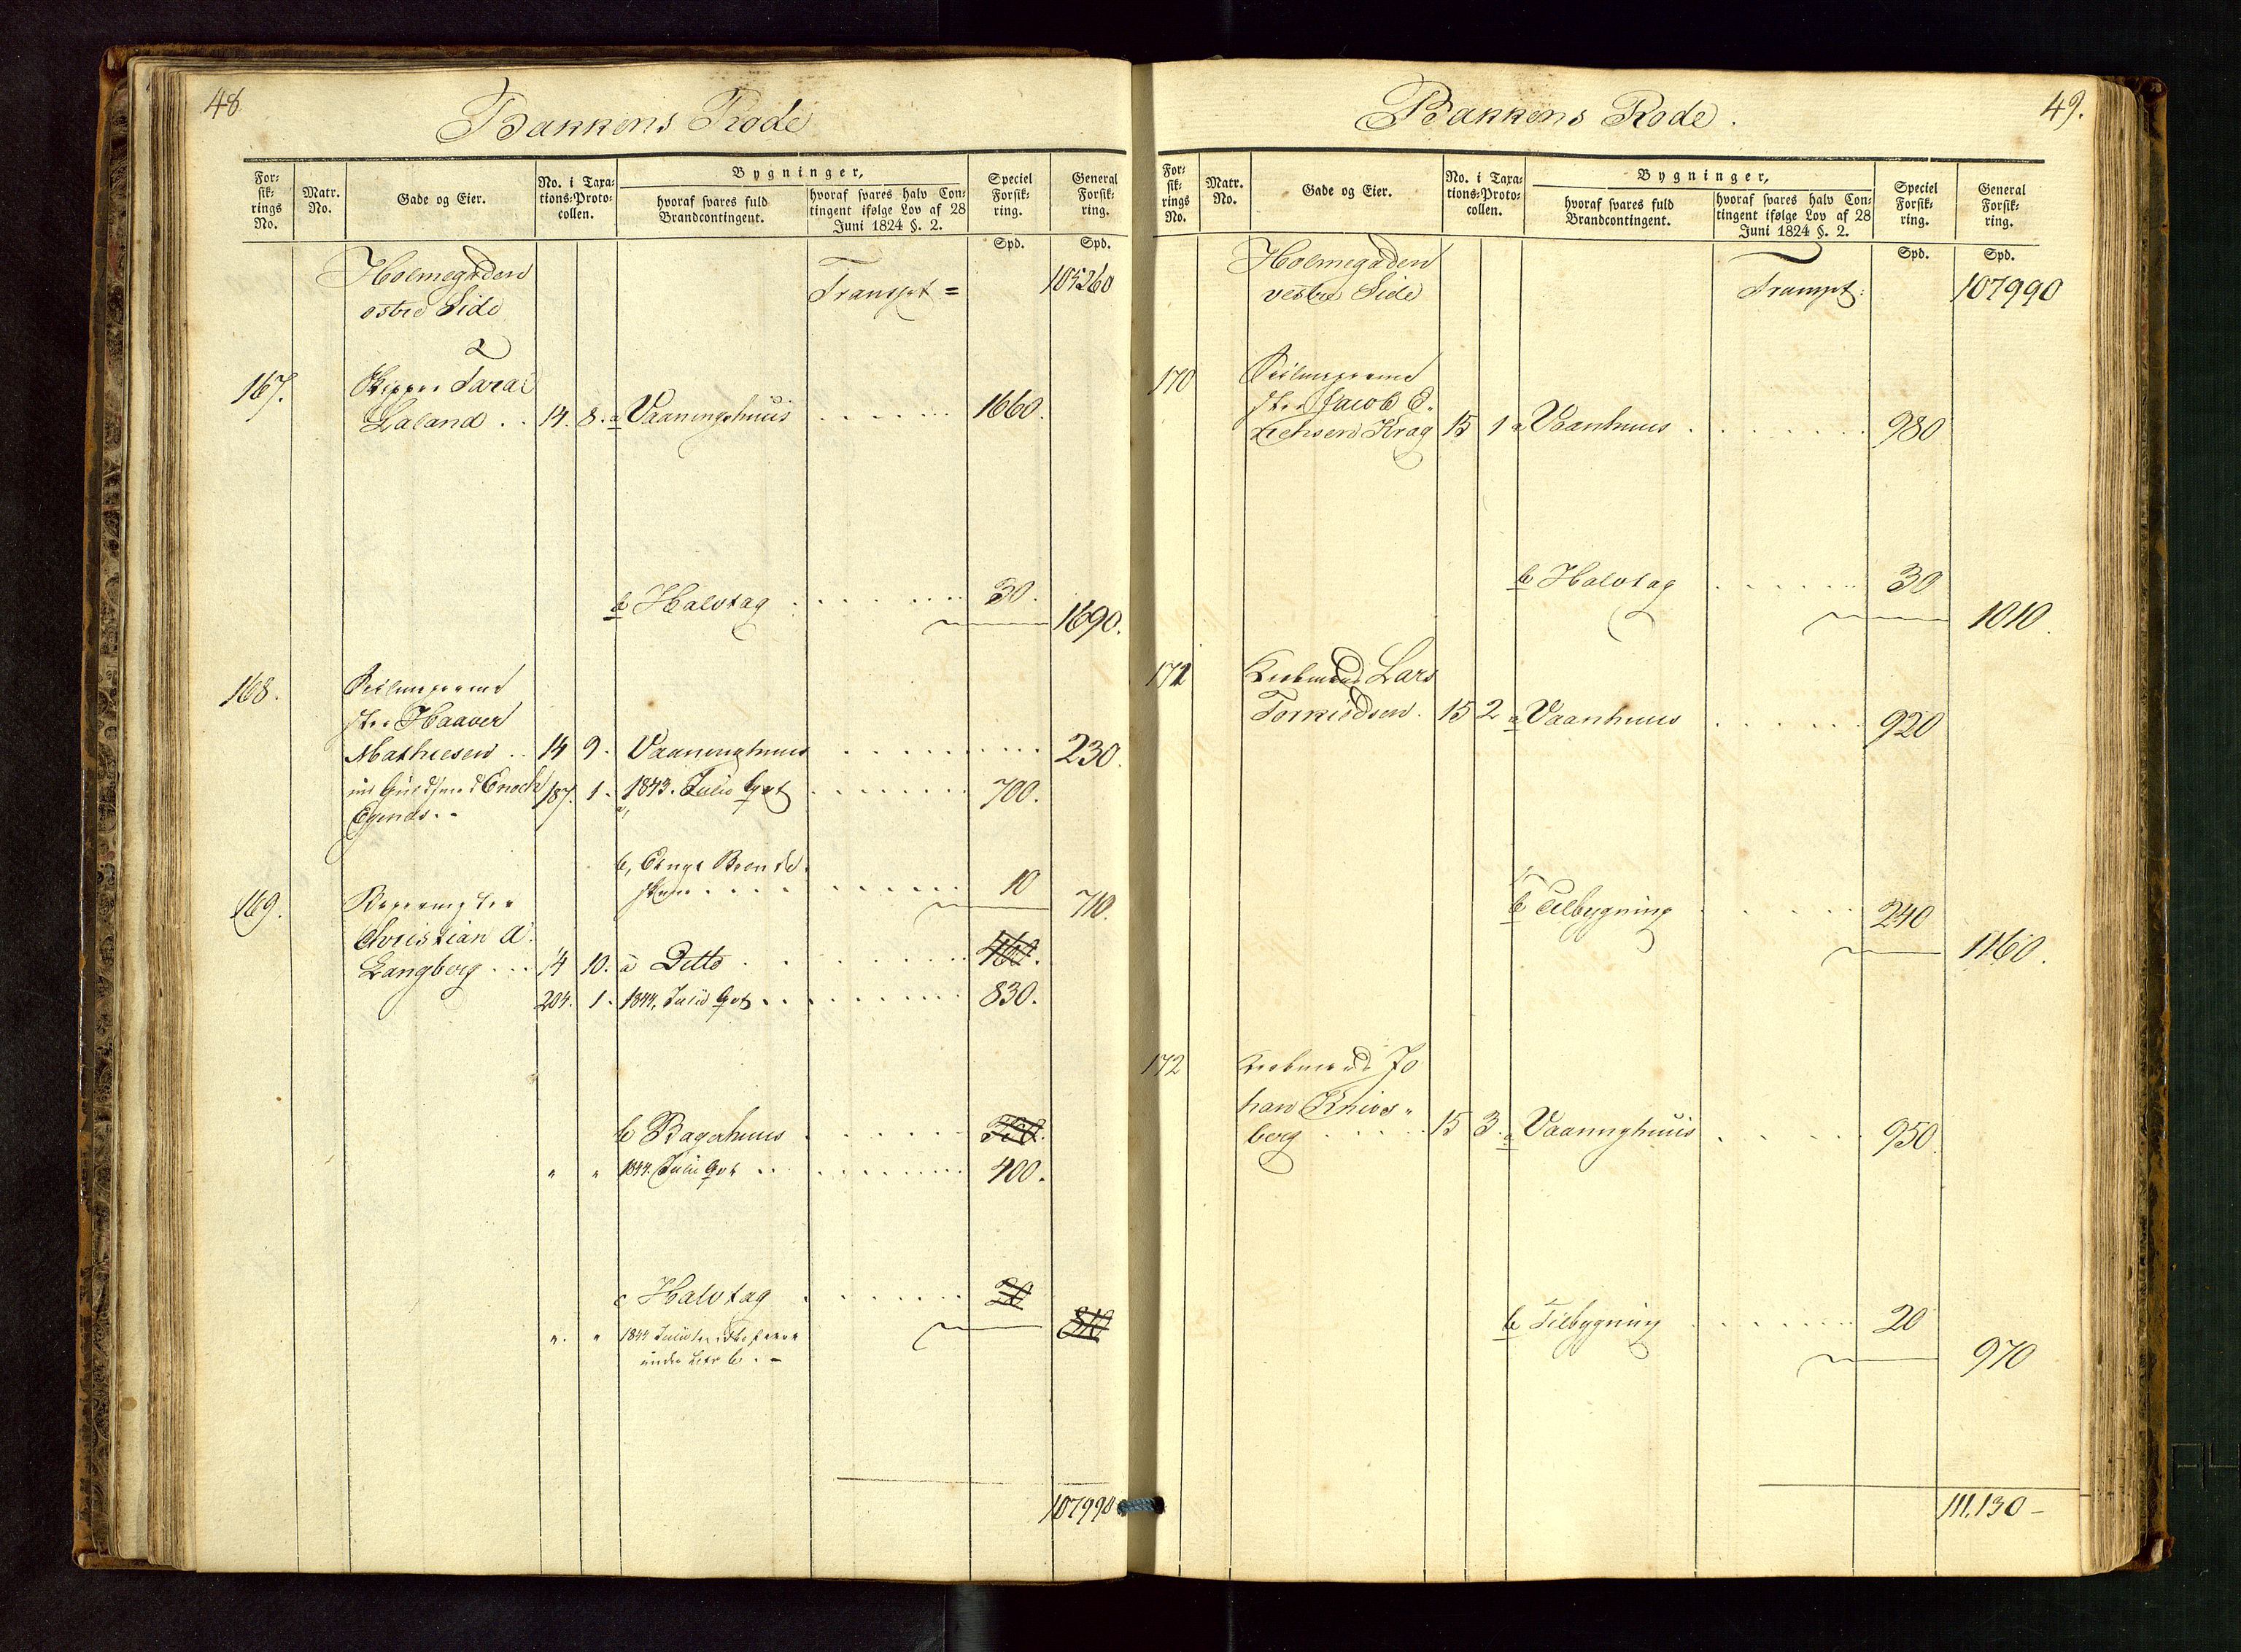 48
Bakkens Rode
For=
sik=
rings
No.
Matr.
No.
Gade og Eier.
No. i Taxa=
tions=Proto=
collen.
Bygninger,
hvoraf svares fuld
Brandcontingent.
hvoraf svares halv Con=
tingent ifølge Lov af 28
Juni 1824 §. 2.
Speciel
Forsik=
ring.
General
Forsik=
ring.
Spd. Spd.
Holmegaden
østre Side
Transpt = 105260
167. Skipper Taral
Laland . . 14. 8. a Vaaningshuus 1660.
b Halvtag 30.
1690.
168.
Haaver
Mathiesen . . 14 9. Vaaninghuus 230.
Enoch 187. 1. a, 1843. Julii Qvt 700.
Egends. -
b,
10
710.
169.
Christian A.
Langberg . . . 14 10. a Ditto 460.
204. 1. 1844. Julii Qvt 830.
b Bagerhuus
" " 1844. Julii Qvt 400.
c Halvtag 20
310
". " 1844 Julii
under Litr b. -
107990
49.
Bakkens Rode.
For=
sik=
rings
No.
Matr.
No.
Gade og Eier.
No. i Taxa=
tions=Proto=
collen.
Bygninger,
hvoraf svares fuld
Brandcontingent.
hvoraf svares halv Con=
tingent ifølge Lov af 28
Juni 1824 §. 2.
Speciel
Forsik=
ring.
General
Forsik=
ring.
Spd. Spd.
Holmegaden
vestre Side
Transpt: 107990
170
Jacob E.
Krag 15 1 a Vaanhuus 980
b Halvtag 30
1010.
171 Lars
Torkildsen. 15 2 a Vaanhuus 920
b Tilbygning 240
1160.
172 Jo
han Knivs=
berg 15 3. a Vaaninghuus 950.
b Tilbygning 20
970
111,130 -